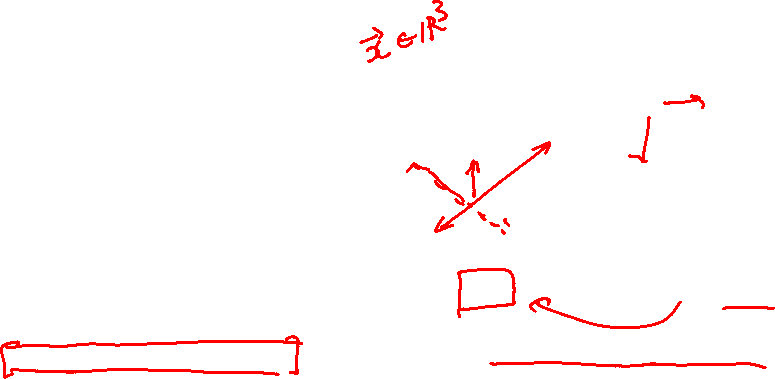 $\vec{x} \in \mathbb{R}^3$